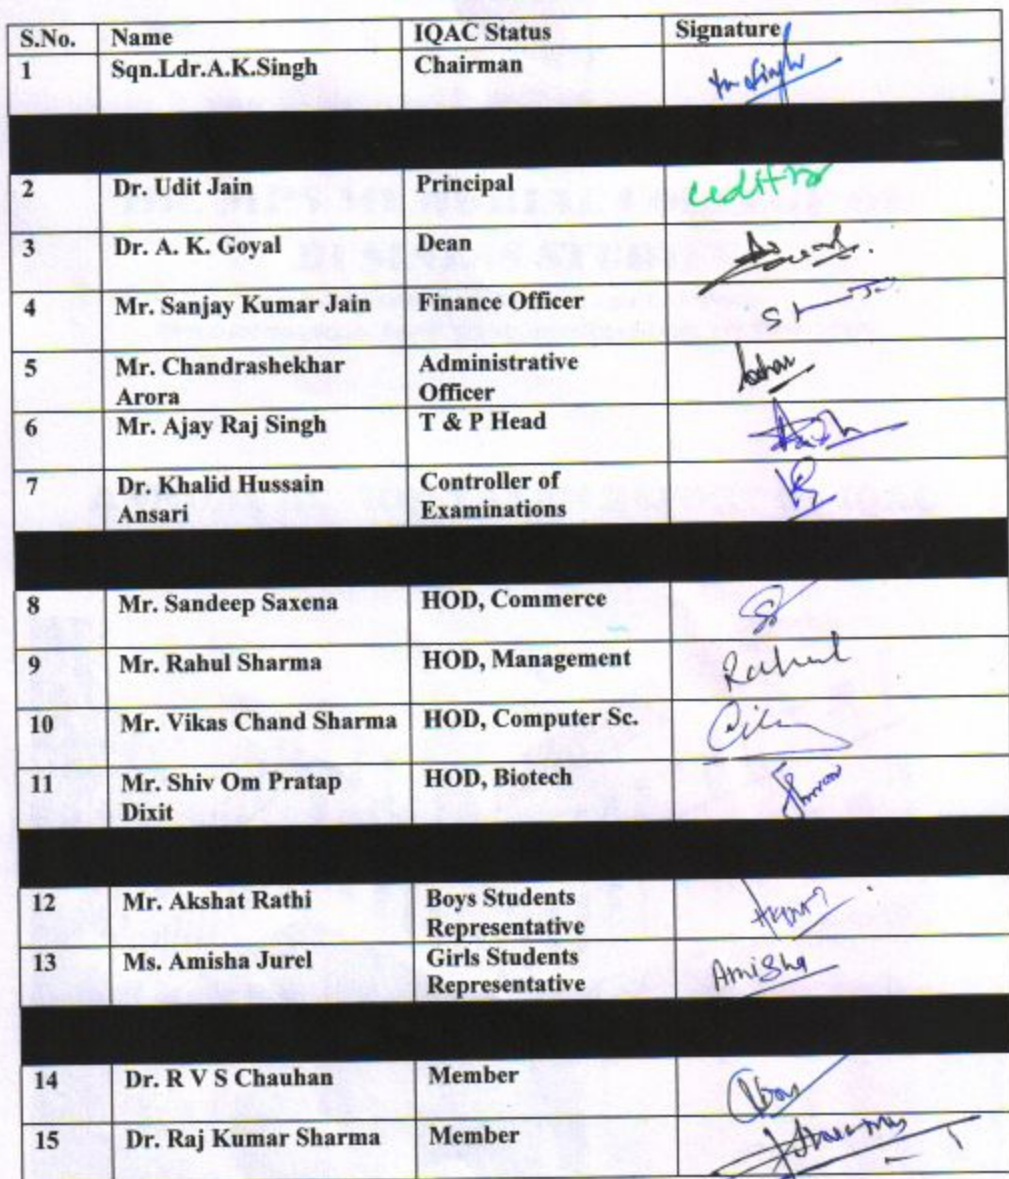 S.No. Name IQAC Status Signature
1 Sqn.Ldr.A.K.Singh Chairman
2 Dr. Udit Jain Principal
3 Dr. A. K. Goyal Dean
4 Mr. Sanjay Kumar Jain Finance Officer
5 Mr. Chandrashekhar Administrative
Arora Officer
6 Mr. Ajay Raj Singh T & P Head
7 Dr. Khalid Hussain Controller of
Ansari Examinations
8 Mr. Sandeep Saxena HOD, Commerce
9 Mr. Rahul Sharma HOD, Management Rahul
10 Mr. Vikas Chand Sharma HOD, Computer Sc.
11 Mr. Shiv Om Pratap HOD, Biotech
Dixit
12 Mr. Akshat Rathi Boys Students
Representative
13 Ms. Amisha Jurel Girls Students
Representative Amisha
14 Dr. R V S Chauhan Member
15 Dr. Raj Kumar Sharma Member